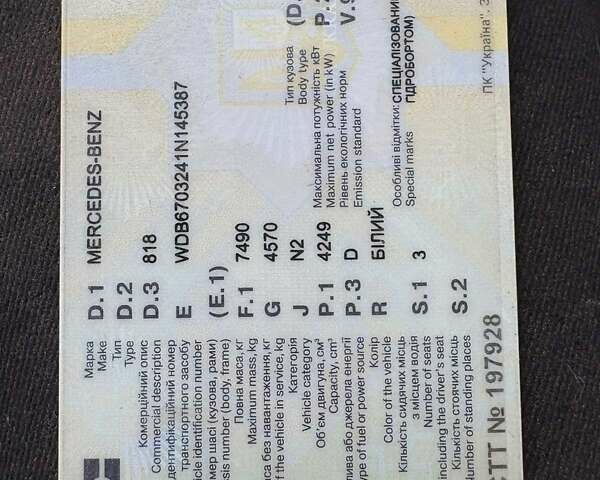 Марка
Make
D.1 MERCEDES-BENZ
Тип
Type
D.2
Комерційний опис
Commercial description
D.3 818
дентифікаційний номер
транспортного засобу
icle identification number
E WDB6703241N145387
мер шасі (кузова, рами)
sis number (body, frame)
(E.1)
Повна маса, кг
Maximum mass, kg
F.1 7490
са без навантаження, кг
f the vehicle in service, kg
G 4570
Категорія
Vehicle category
J N2
Об'єм двигуна, см³
Capacity, cm³
P.1 4249
лива або джерела енергії
ype of fuel or power source
P.3 D
Колір
Color of the vehicle
R БІЛИЙ
Кількість сидячих місць
з місцем водія
Number of seats
including the driver's seat
S.1 3
Кількість стоячих місць
Number of standing places
S.2
СТТ № 197928
Тип кузова
Body type
(D.
Максимальна потужність кВт
Maximum net power (in kW)
P.2
Рівень екологічних норм
Emission standard
V.9
Особливі відмітки:
Special marks
СПЕЦІАЛІЗОВАНИ
ГІДРОБОРТОМ)
ПК "Україна". З